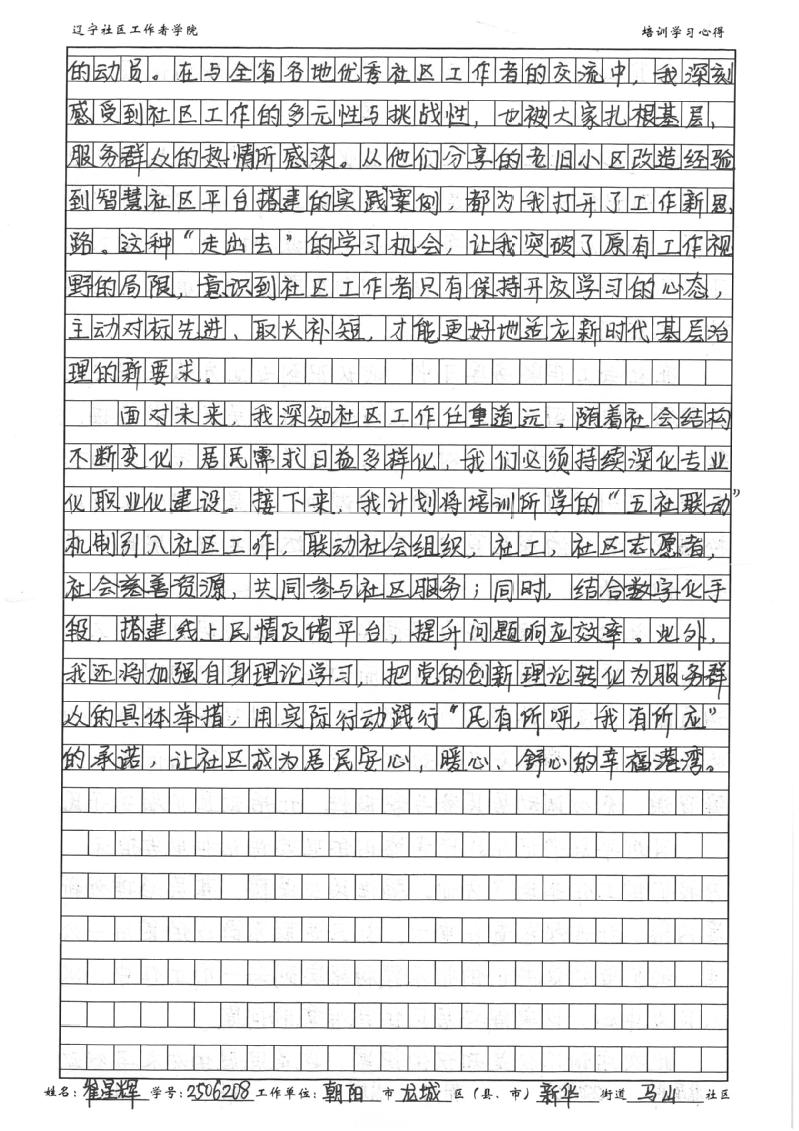 辽宁社区工作者学院 培训学习心得
的动员。在与全省各地优秀社区工作者的交流中，我深刻
感受到社区工作的多元性与挑战性，也被大家扎根基层、
服务群众的热情所感染。从他们分享的老旧小区改造经验
到智慧社区平台搭建的实践案例，都为我打开了工作新思
路。这种“走出去”的学习机会，让我突破了原有工作视
野的局限，意识到社区工作者只有保持开放学习的心态，
主动对标先进、取长补短，才能更好地适应新时代基层治
理的新要求。
面对未来，我深知社区工作任重道远。随着社会结构
不断变化，居民需求日益多样化，我们必须持续深化专业
化职业化建设。接下来，我计划将培训所学的“五社联动”
机制引入社区工作，联动社会组织，社工，社区志愿者，
社会慈善资源，共同参与社区服务；同时，结合数字化手
段，搭建线上民情反馈平台，提升问题响应效率。此外，
我还将加强自身理论学习，把党的创新理论转化为服务群
众的具体举措，用实际行动践行“民有所呼，我有所应”
的承诺，让社区成为居民安心，暖心、舒心的幸福港湾。
姓名：崔星辉 学号：2506208 工作单位：朝阳 市 龙城 区（县、市） 新华 街道 马山 社区